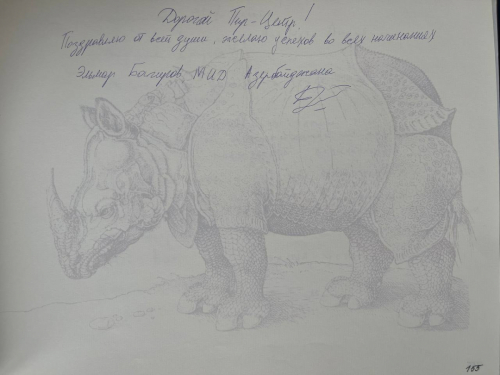 Дорогой Пир-Центр!
Поздравляю от всей души, желаю успехов во всех начинаниях
Эльмар Багиров, МИД Азербайджана
165